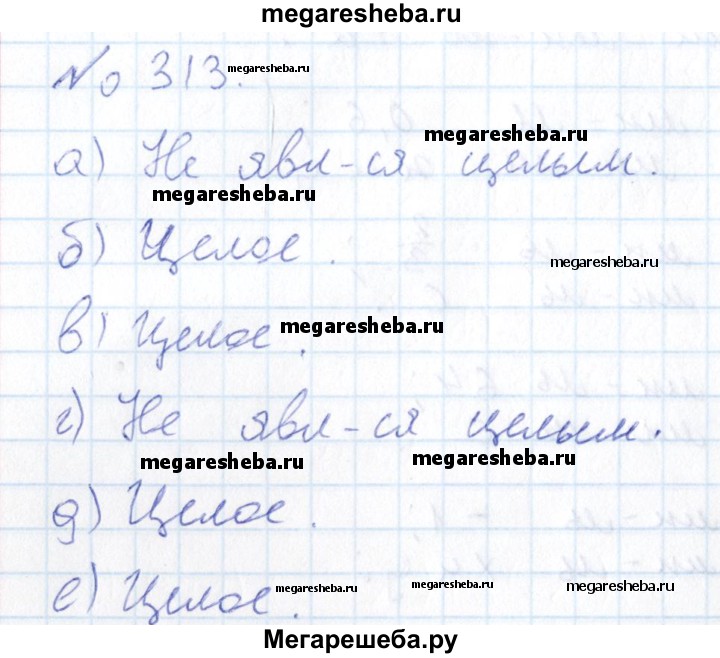 megaresheba.ru
№ 313. megaresheba.ru
megaresheba.ru
а) Не явл-ся целым.
megaresheba.ru
б) Целое.
megaresheba.ru
в) Целое. megaresheba.ru
г) Не явл-ся целым.
megaresheba.ru megaresheba.ru
д) Целое.
е) Целое. megaresheba.ru megaresheba.ru
Мегарешеба.ру